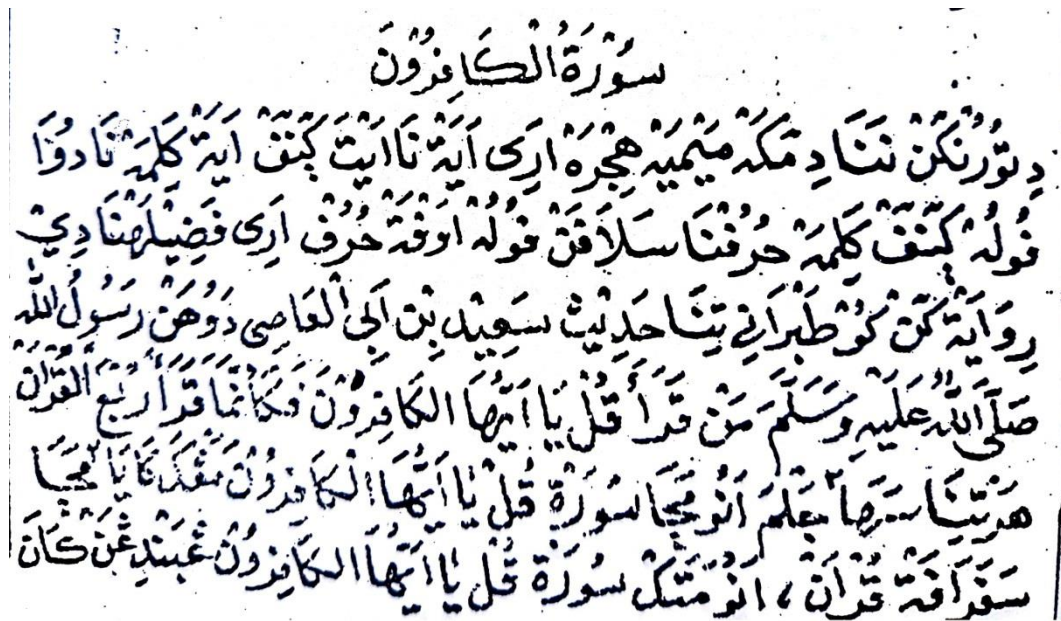 سُوْرَةُ الْكَافِرُوْنَ
دِتُوْرُنْكَنْ نَنَادِ مَكَهْ مَيْمَيَهْ هِجْرَهْ اَرَى اَيَةْ نَااَيْتَ كَنَّفْ اَيَةْ كَلِمَهْ نَادُوْا
فُوْلُهْ كَنَّفْ كَلِمَهْ حُرُفْنَا سَلَافَنْ فُوْلُهْ اَوْفَةْ حُرُفْ اَرَى فَضِيْلَهْنَا دِيْ
رِوَايَةْ كَنْ كُوْ طَبْرَانِيْ تِنَا حَدِيْثْ سَعِيْد بِنْ اَبِى الْعَاصِى دَوُهَنْ رَسُوْلُ اللّٰه
صَلَّى اللّٰهُ عَلَيْهِ وَسَلَّمَ مَنْ قَرَأَ قُلْ يَا اَيُّهَا الْكَافِرُوْنَ فَكَاَنَّمَا قَرَأَ رُبُعَ الْقُرْاٰنِ
هَرْتِنَا سَرَهَا٢ جَلْمَ اَنُوْ مَچَا سُوْرَةْ قُلْ يَا اَيُّهَا الْكَافِرُوْنَ مَڠْكَ نَايَا مَچَا
سَفْرَافَةْ قُرْاٰنْ ، اَنُوْ مَتَكْ سُوْرَةْ قُلْ يَا اَيُّهَا الْكَافِرُوْنَ عِبَنْدِڠَنْ كَانَ